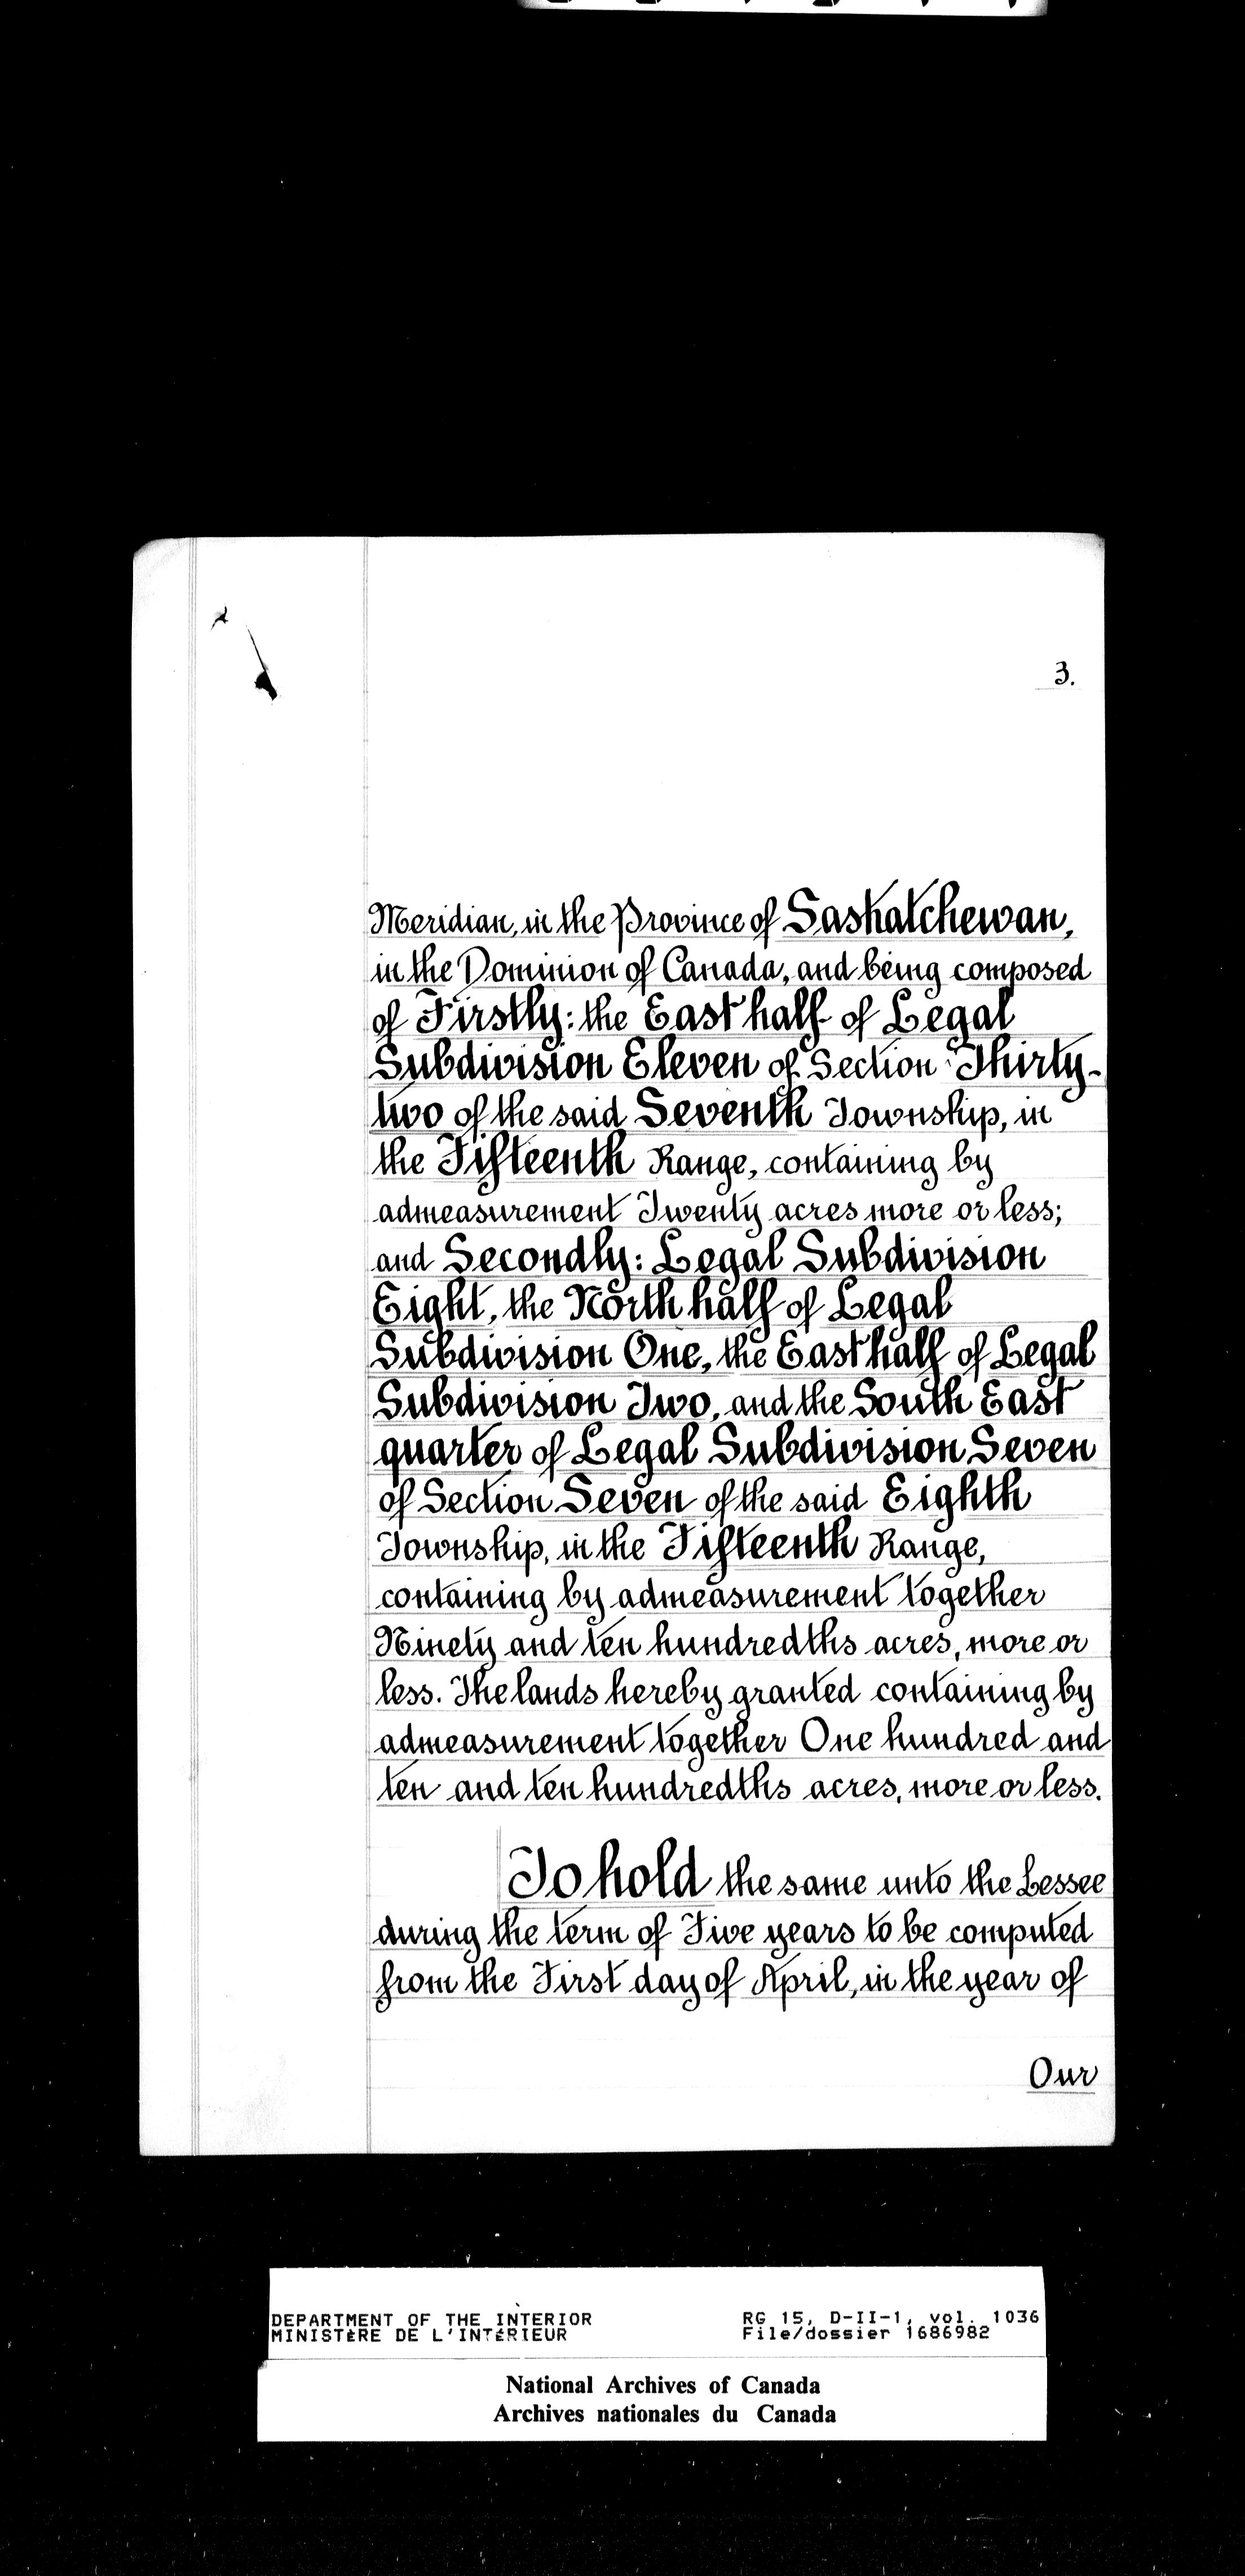 3.
Meridian, in the Province of Saskatchewan,
in the Dominion of Canada, and being composed
of Firstly: the East half of Legal
Subdivision Eleven of Section Thirty-
two of the said Seventh Township, in
the Fifteenth Range, containing by
admeasurement Twenty acres more or less;
and Secondly: Legal Subdivision
Eight, the North half of Legal
Subdivision One, the East half of Legal
Subdivision Two, and the South East
quarter of Legal Subdivision Seven
of Section Seven of the said Eighth
Township, in the Fifteenth Range,
containing by admeasurement together
Ninety and ten hundredths acres, more or
less. The lands hereby granted containing by
admeasurement together One hundred and
ten and ten hundredths acres, more or less.
To hold the same unto the Lessee
during the term of Five years to be computed
from the First day of April, in the year of
Our
DEPARTMENT OF THE INTERIOR RG 15, D-II-1, vol. 1036
MINISTÈRE DE L'INTÉRIEUR File/dossier 1686982
National Archives of Canada
Archives nationales du Canada